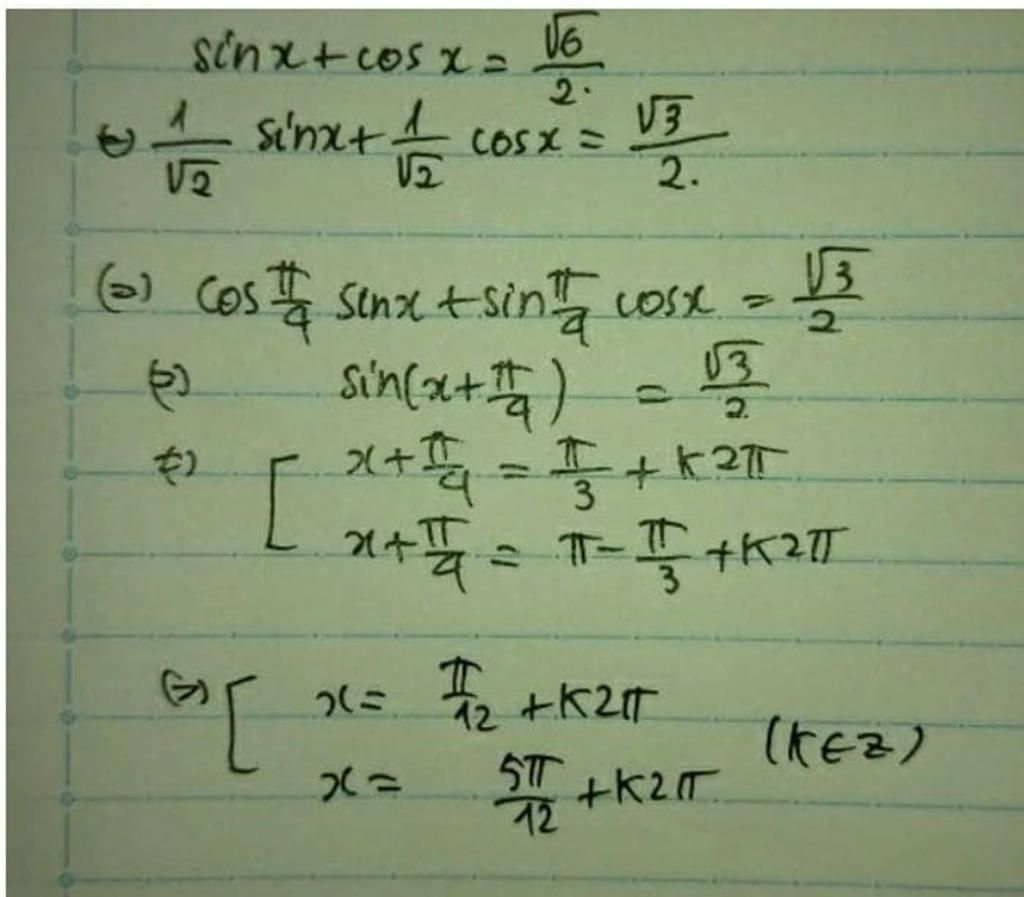 sinx + cos x = √6/2.
⇔ 1/√2 sinx + 1/√2 cosx = √3/2.
⇔ cos π/4 sinx + sin π/4 cosx = √3/2
⇔ sin(x + π/4) = √3/2
⇔ [ x + π/4 = π/3 + K2π
x + π/4 = π - π/3 + K2π
⇔ [ x = π/12 + K2π
x = 5π/12 + K2π (K∈Z)